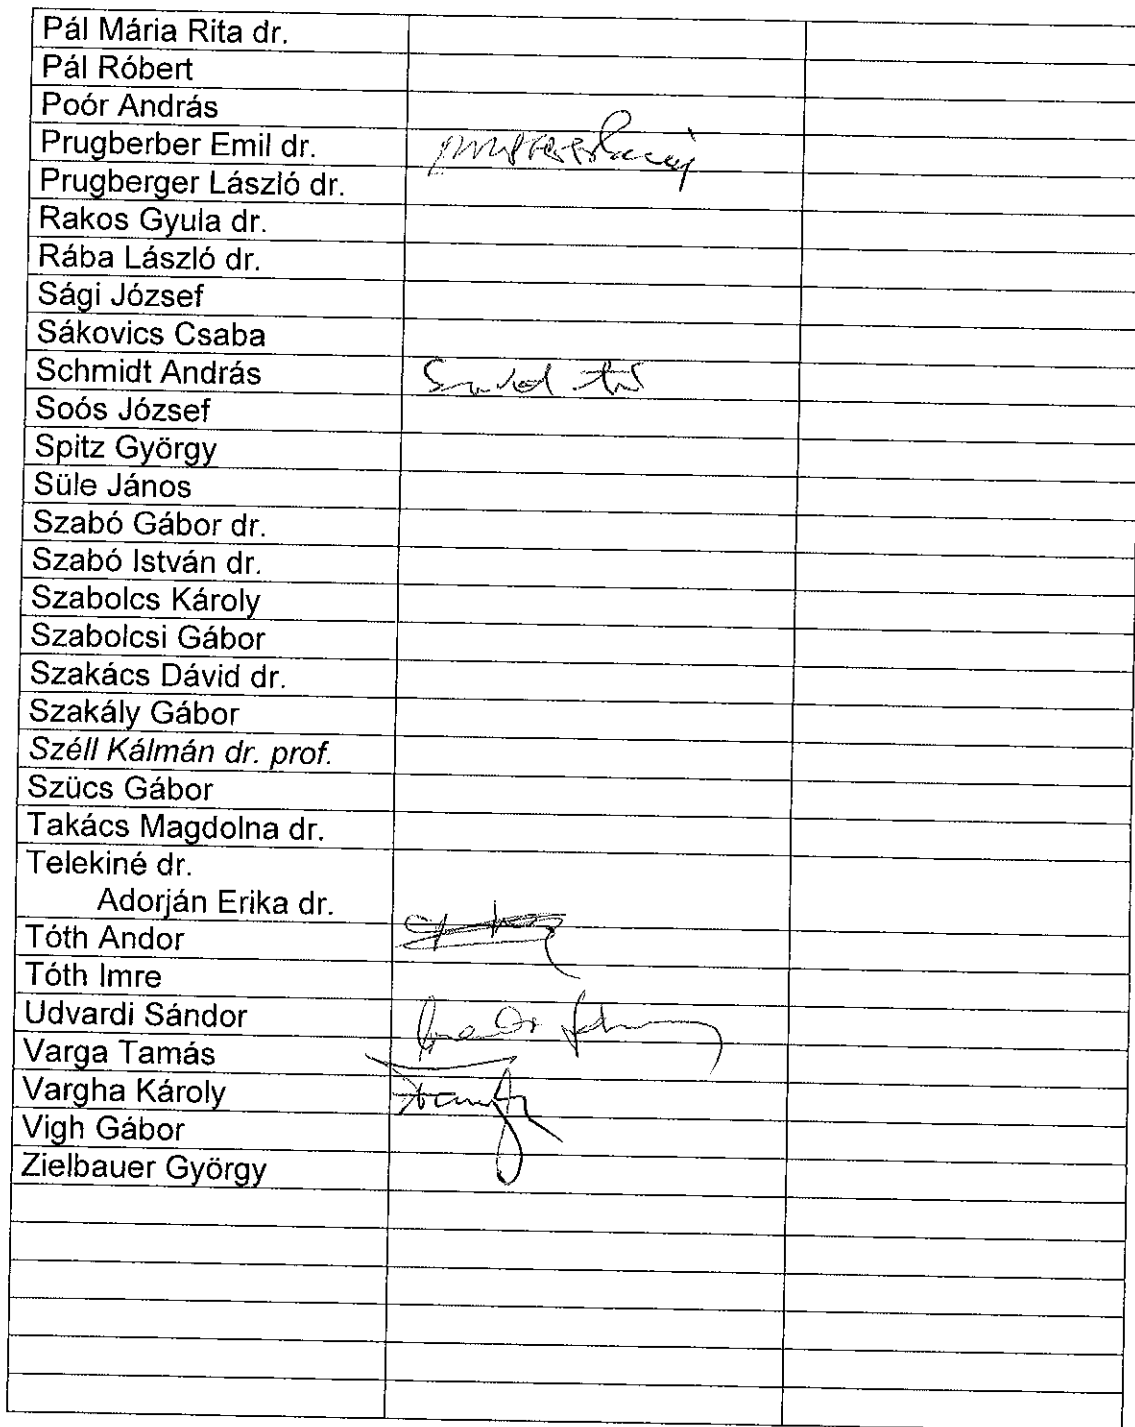 Pál Mária Rita dr.
Pál Róbert
Poór András
Prugberber Emil dr.
Prugberger László dr.
Rakos Gyula dr.
Rába László dr.
Sági József
Sákovics Csaba
Schmidt András
Soós József
Spitz György
Süle János
Szabó Gábor dr.
Szabó István dr.
Szabolcs Károly
Szabolcsi Gábor
Szakács Dávid dr.
Szakály Gábor
Széll Kálmán dr. prof.
Szücs Gábor
Takács Magdolna dr.
Telekiné dr.
Adorján Erika dr.
Tóth Andor
Tóth Imre
Udvardi Sándor
Varga Tamás
Vargha Károly
Vigh Gábor
Zielbauer György